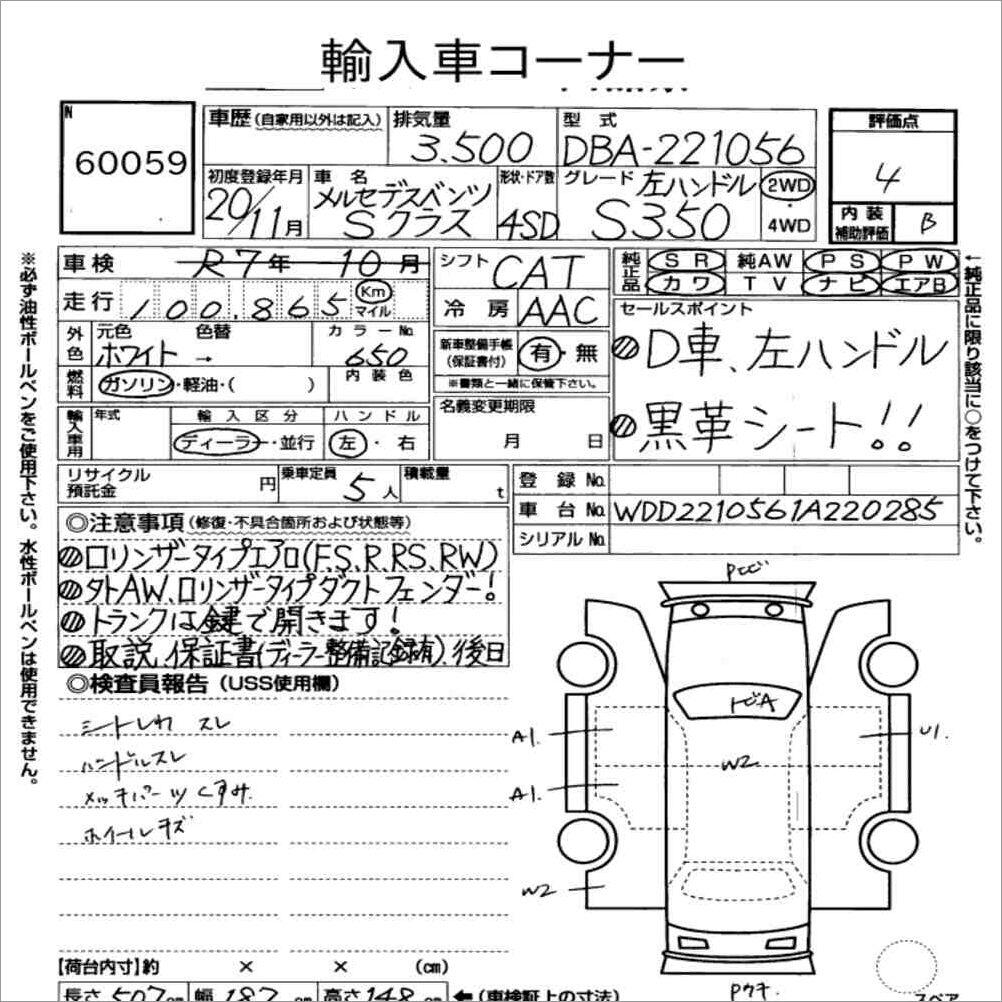 輸入車コーナー
N
60059
車歴(自家用以外は記入)
排気量
3.500
型式
DBA-221056
評価点
4
内装
補助評価
B
初度登録年月
20/11月
車名
メルセデスベンツ
Sクラス
形状・ドア数
4SD
グレード
左ハンドル
S350
2WD
・
4WD
車検
R7年 10月
シフト
CAT
純正品
SR 純AW PS PW
カワ TV ナビ エアB
走行
100.865
Km
マイル
冷房
AAC
セールスポイント
D車、左ハンドル
黒革シート!!
外色
元色 色替
ホワイト→
カラーNo.
650
新車整備手帳
(保証書付)
有・無
※書類と一緒に保管下さい。
燃料
ガソリン・軽油・( )
内装色
輸入車用
年式
輸入区分
ディーラー・並行
ハンドル
左・右
名義変更期限
月 日
リサイクル
預託金
円
乗車定員
5人
積載量
t
登録No.
車台No.
WDD2210561A220285
シリアルNo.
◎注意事項(修復・不具合箇所および状態等)
ロリンザータイプエアロ(F.S,R.RS、RW)
タトAW、ロリンザータイプダクトフェンダー!
トランクは鍵で開きます!
取説、保証書(ディーラー整備記録有)、後日
◎検査員報告(USS使用欄)
シートしわ スレ
ハンドルスレ
メッキパーツくすみ
ホイールキズ
A1.
A1.
W2
W2
U1.
【荷台内寸】約 × × (cm)
長さ 507cm 幅 187cm 高さ 148cm ←(車検証上の寸法)
スペア
※必ず油性ボールペンをご使用下さい。水性ボールペンは使用できません。
←純正品に限り該当に○をつけて下さい。